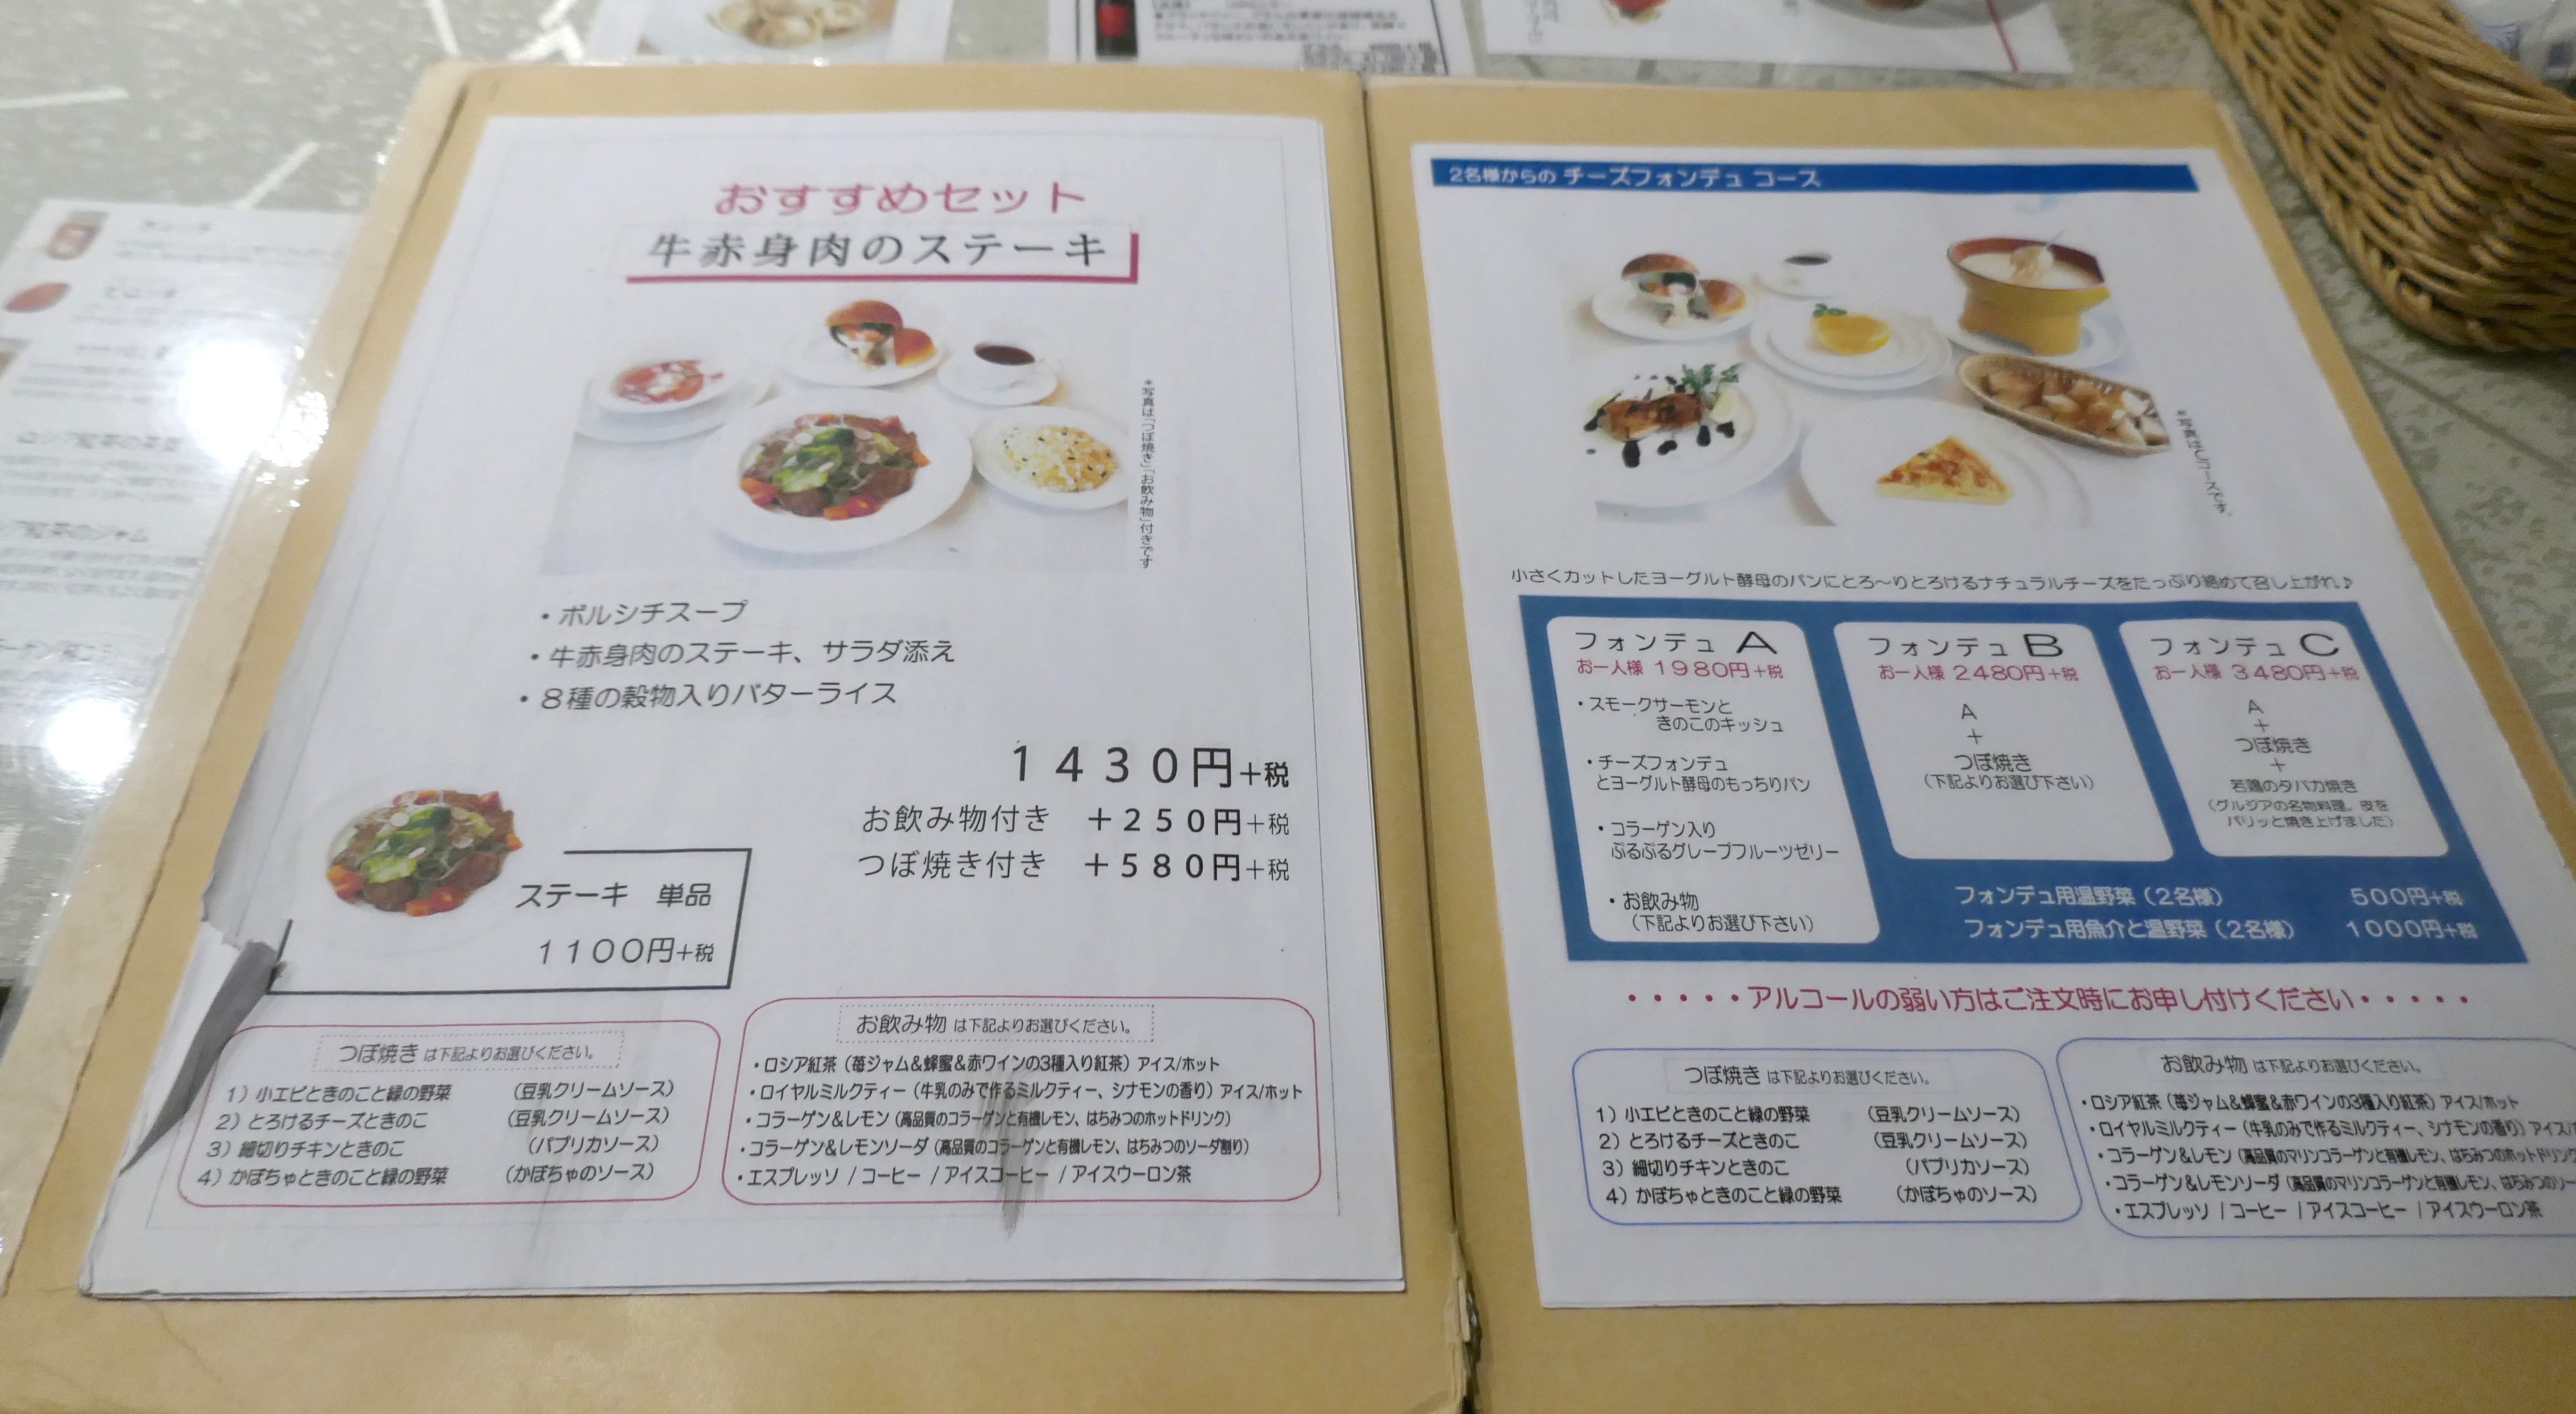 おすすめセット
牛赤身肉のステーキ
*写真は「つぼ焼き」「お飲み物」付きです
・ボルシチスープ
・牛赤身肉のステーキ、サラダ添え
・8種の穀物入りバターライス
1430円+税
お飲み物付き +250円+税
つぼ焼き付き +580円+税
ステーキ 単品
1100円+税
つぼ焼き は下記よりお選びください。
1）小エビときのこと緑の野菜 （豆乳クリームソース）
2）とろけるチーズときのこ （豆乳クリームソース）
3）細切りチキンときのこ （パプリカソース）
4）かぼちゃときのこと緑の野菜 （かぼちゃのソース）
お飲み物 は下記よりお選びください。
・ロシア紅茶（苺ジャム&蜂蜜&赤ワインの3種入り紅茶）アイス/ホット
・ロイヤルミルクティー（牛乳のみで作るミルクティー、シナモンの香り）アイス/ホット
・コラーゲン&レモン（高品質のコラーゲンと有機レモン、はちみつのホットドリンク）
・コラーゲン&レモンソーダ（高品質のコラーゲンと有機レモン、はちみつのソーダ割り）
・エスプレッソ / コーヒー / アイスコーヒー / アイスウーロン茶
2名様からの チーズフォンデュ コース
*写真はCコースです。
小さくカットしたヨーグルト酵母のパンにとろ〜りとろけるナチュラルチーズをたっぷり絡めて召し上がれ♪
フォンデュ A
お一人様 1980円+税
・スモークサーモンと
きのこのキッシュ
・チーズフォンデュ
とヨーグルト酵母のもっちりパン
・コラーゲン入り
ぷるぷるグレープフルーツゼリー
・お飲み物
（下記よりお選び下さい）
フォンデュ B
お一人様 2480円+税
A
+
つぼ焼き
（下記よりお選び下さい）
フォンデュ C
お一人様 3480円+税
A
+
つぼ焼き
+
若鶏のタバカ焼き
（グルジアの名物料理。皮を
パリッと焼き上げました）
フォンデュ用温野菜（2名様） 500円+税
フォンデュ用魚介と温野菜（2名様） 1000円+税
・・・・・アルコールの弱い方はご注文時にお申し付けください・・・・・
つぼ焼き は下記よりお選びください。
1）小エビときのこと緑の野菜 （豆乳クリームソース）
2）とろけるチーズときのこ （豆乳クリームソース）
3）細切りチキンときのこ （パプリカソース）
4）かぼちゃときのこと緑の野菜 （かぼちゃのソース）
お飲み物 は下記よりお選びください。
・ロシア紅茶（苺ジャム&蜂蜜&赤ワインの3種入り紅茶）アイス/ホット
・ロイヤルミルクティー（牛乳のみで作るミルクティー、シナモンの香り）アイス/
・コラーゲン&レモン（高品質のマリンコラーゲンと有機レモン、はちみつのホットドリンク
・コラーゲン&レモンソーダ（高品質のマリンコラーゲンと有機レモン、はちみつのソー
・エスプレッソ / コーヒー / アイスコーヒー / アイスウーロン茶